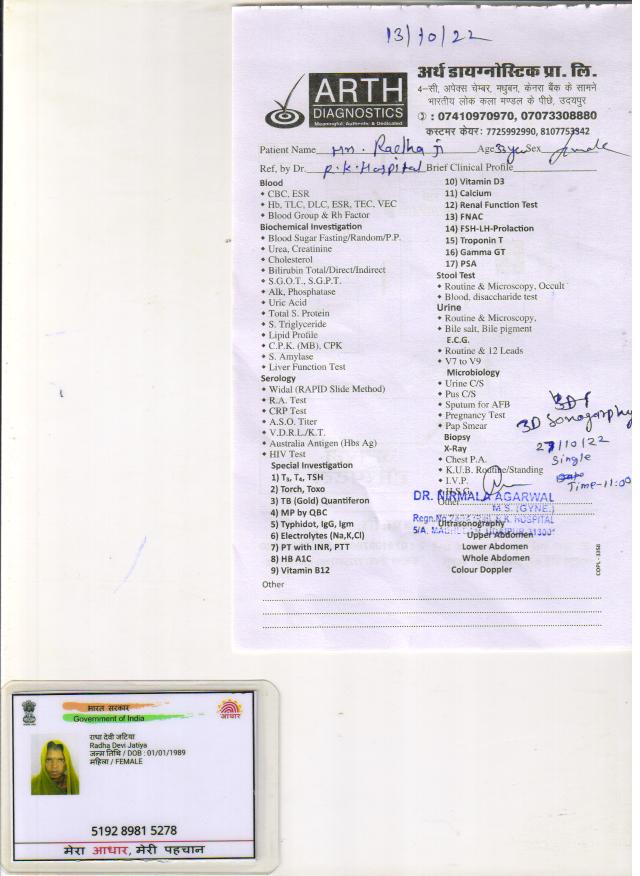 13/10/22
ARTH
DIAGNOSTICS
Meaningful, Authentic & Dedicated
अर्थ डायग्नोस्टिक प्रा. लि.
4-सी, अपेक्स चेम्बर, मधुबन, केनरा बैंक के सामने
भारतीय लोक कला मण्डल के पीछे, उदयपुर
: 07410970970, 07073308880
कस्टमर केयर : 7725992990, 8107753342
Patient Name Mrs. Radha ji Age 33 yrs Sex female
Ref, by Dr. P.K. Hospital Brief Clinical Profile
Blood
CBC, ESR
Hb, TLC, DLC, ESR, TEC, VEC
Blood Group & Rh Factor
Biochemical Investigation
Blood Sugar Fasting/Random/P.P.
Urea, Creatinine
Cholesterol
Bilirubin Total/Direct/Indirect
S.G.O.T., S.G.P.T.
Alk, Phosphatase
Uric Acid
Total S. Protein
S. Triglyceride
Lipid Profile
C.P.K. (MB), CPK
S. Amylase
Liver Function Test
Serology
Widal (RAPID Slide Method)
R.A. Test
CRP Test
A.S.O. Titer
V.D.R.L./K.T.
Australia Antigen (Hbs Ag)
HIV Test
Special Investigation
1) T₃, T₄, TSH
2) Torch, Toxo
3) TB (Gold) Quantiferon
4) MP by QBC
5) Typhidot, IgG, Igm
6) Electrolytes (Na,K,Cl)
7) PT with INR, PTT
8) HB A1C
9) Vitamin B12
Other
10) Vitamin D3
11) Calcium
12) Renal Function Test
13) FNAC
14) FSH-LH-Prolaction
15) Troponin T
16) Gamma GT
17) PSA
Stool Test
Routine & Microscopy, Occult
Blood, disaccharide test
Urine
Routine & Microscopy,
Bile salt, Bile pigment
E.C.G.
Routine & 12 Leads
V7 to V9
Microbiology
Urine C/S
Pus C/S
Sputum for AFB
Pregnancy Test
Pap Smear
Biopsy
X-Ray
Chest P.A.
K.U.B. Routine/Standing
I.V.P.
H.S.G.
Other
3D Sonography
27/10/22
Single
Time-11:00
DR. NIRMALA AGARWAL
M.S. (GYNE.)
Regn.No.
HOSPITAL
Ultrasonography
Upper Abdomen
Lower Abdomen
Whole Abdomen
Colour Doppler
COPL - 3358
भारत सरकार
Government of India
आधार
राधा देवी जटिया
Radha Devi Jatiya
जन्म तिथि / DOB : 01/01/1989
महिला / FEMALE
5192 8981 5278
मेरा आधार, मेरी पहचान